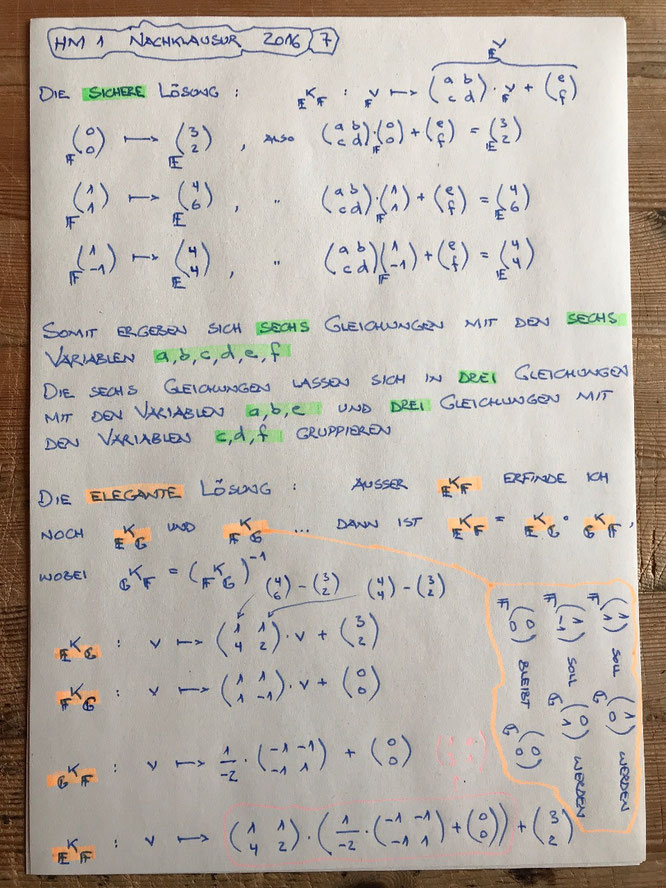 HM 1 NACHKLAUSUR 2016 7
𝔽v
DIE SICHERE LÖSUNG : 𝔼K𝔽 : 𝔽v ↦ (a b; c d) · 𝔽v + (e; f)
𝔽(0; 0) ↦ 𝔼(3; 2) , ALSO (a b; c d)·𝔽(0; 0) + (e; f) = 𝔼(3; 2)
𝔽(1; 1) ↦ 𝔼(4; 6) , " (a b; c d)·𝔽(1; 1) + (e; f) = 𝔼(4; 6)
𝔽(1; -1) ↦ 𝔼(4; 4) , " (a b; c d)𝔽(1; -1) + (e; f) = 𝔼(4; 4)
SOMIT ERGEBEN SICH SECHS GLEICHUNGEN MIT DEN SECHS
VARIABLEN a,b,c,d,e,f
DIE SECHS GLEICHUNGEN LASSEN SICH IN DREI GLEICHUNGEN
MIT DEN VARIABLEN a,b,e UND DREI GLEICHUNGEN MIT
DEN VARIABLEN c,d,f GRUPPIEREN
DIE ELEGANTE LÖSUNG : AUSSER 𝔼K𝔽 ERFINDE ICH
NOCH 𝔼K𝔾 UND 𝔽K𝔾 ... DANN IST 𝔼K𝔽 = 𝔼K𝔾 ∘ 𝔾K𝔽 ,
WOBEI 𝔾K𝔽 = (𝔽K𝔾)^-1
(4; 6) - (3; 2) (4; 4) - (3; 2)
𝔼K𝔾 : v ↦ (1 1; 4 2) · v + (3; 2)
𝔽K𝔾 : v ↦ (1 1; 1 -1) · v + (0; 0)
𝔾K𝔽 : v ↦ 1/-2 · (-1 -1; -1 1) + (0; 0)
𝔼K𝔽 : v ↦ (1 1; 4 2) · (1/-2 · (-1 -1; -1 1) + (0; 0)) + (3; 2)
𝔽(1; 1) SOLL 𝔾(1; 0) WERDEN
𝔽(1; -1) SOLL 𝔾(0; 1) WERDEN
𝔽(0; 0) BLEIBT 𝔾(0; 0)